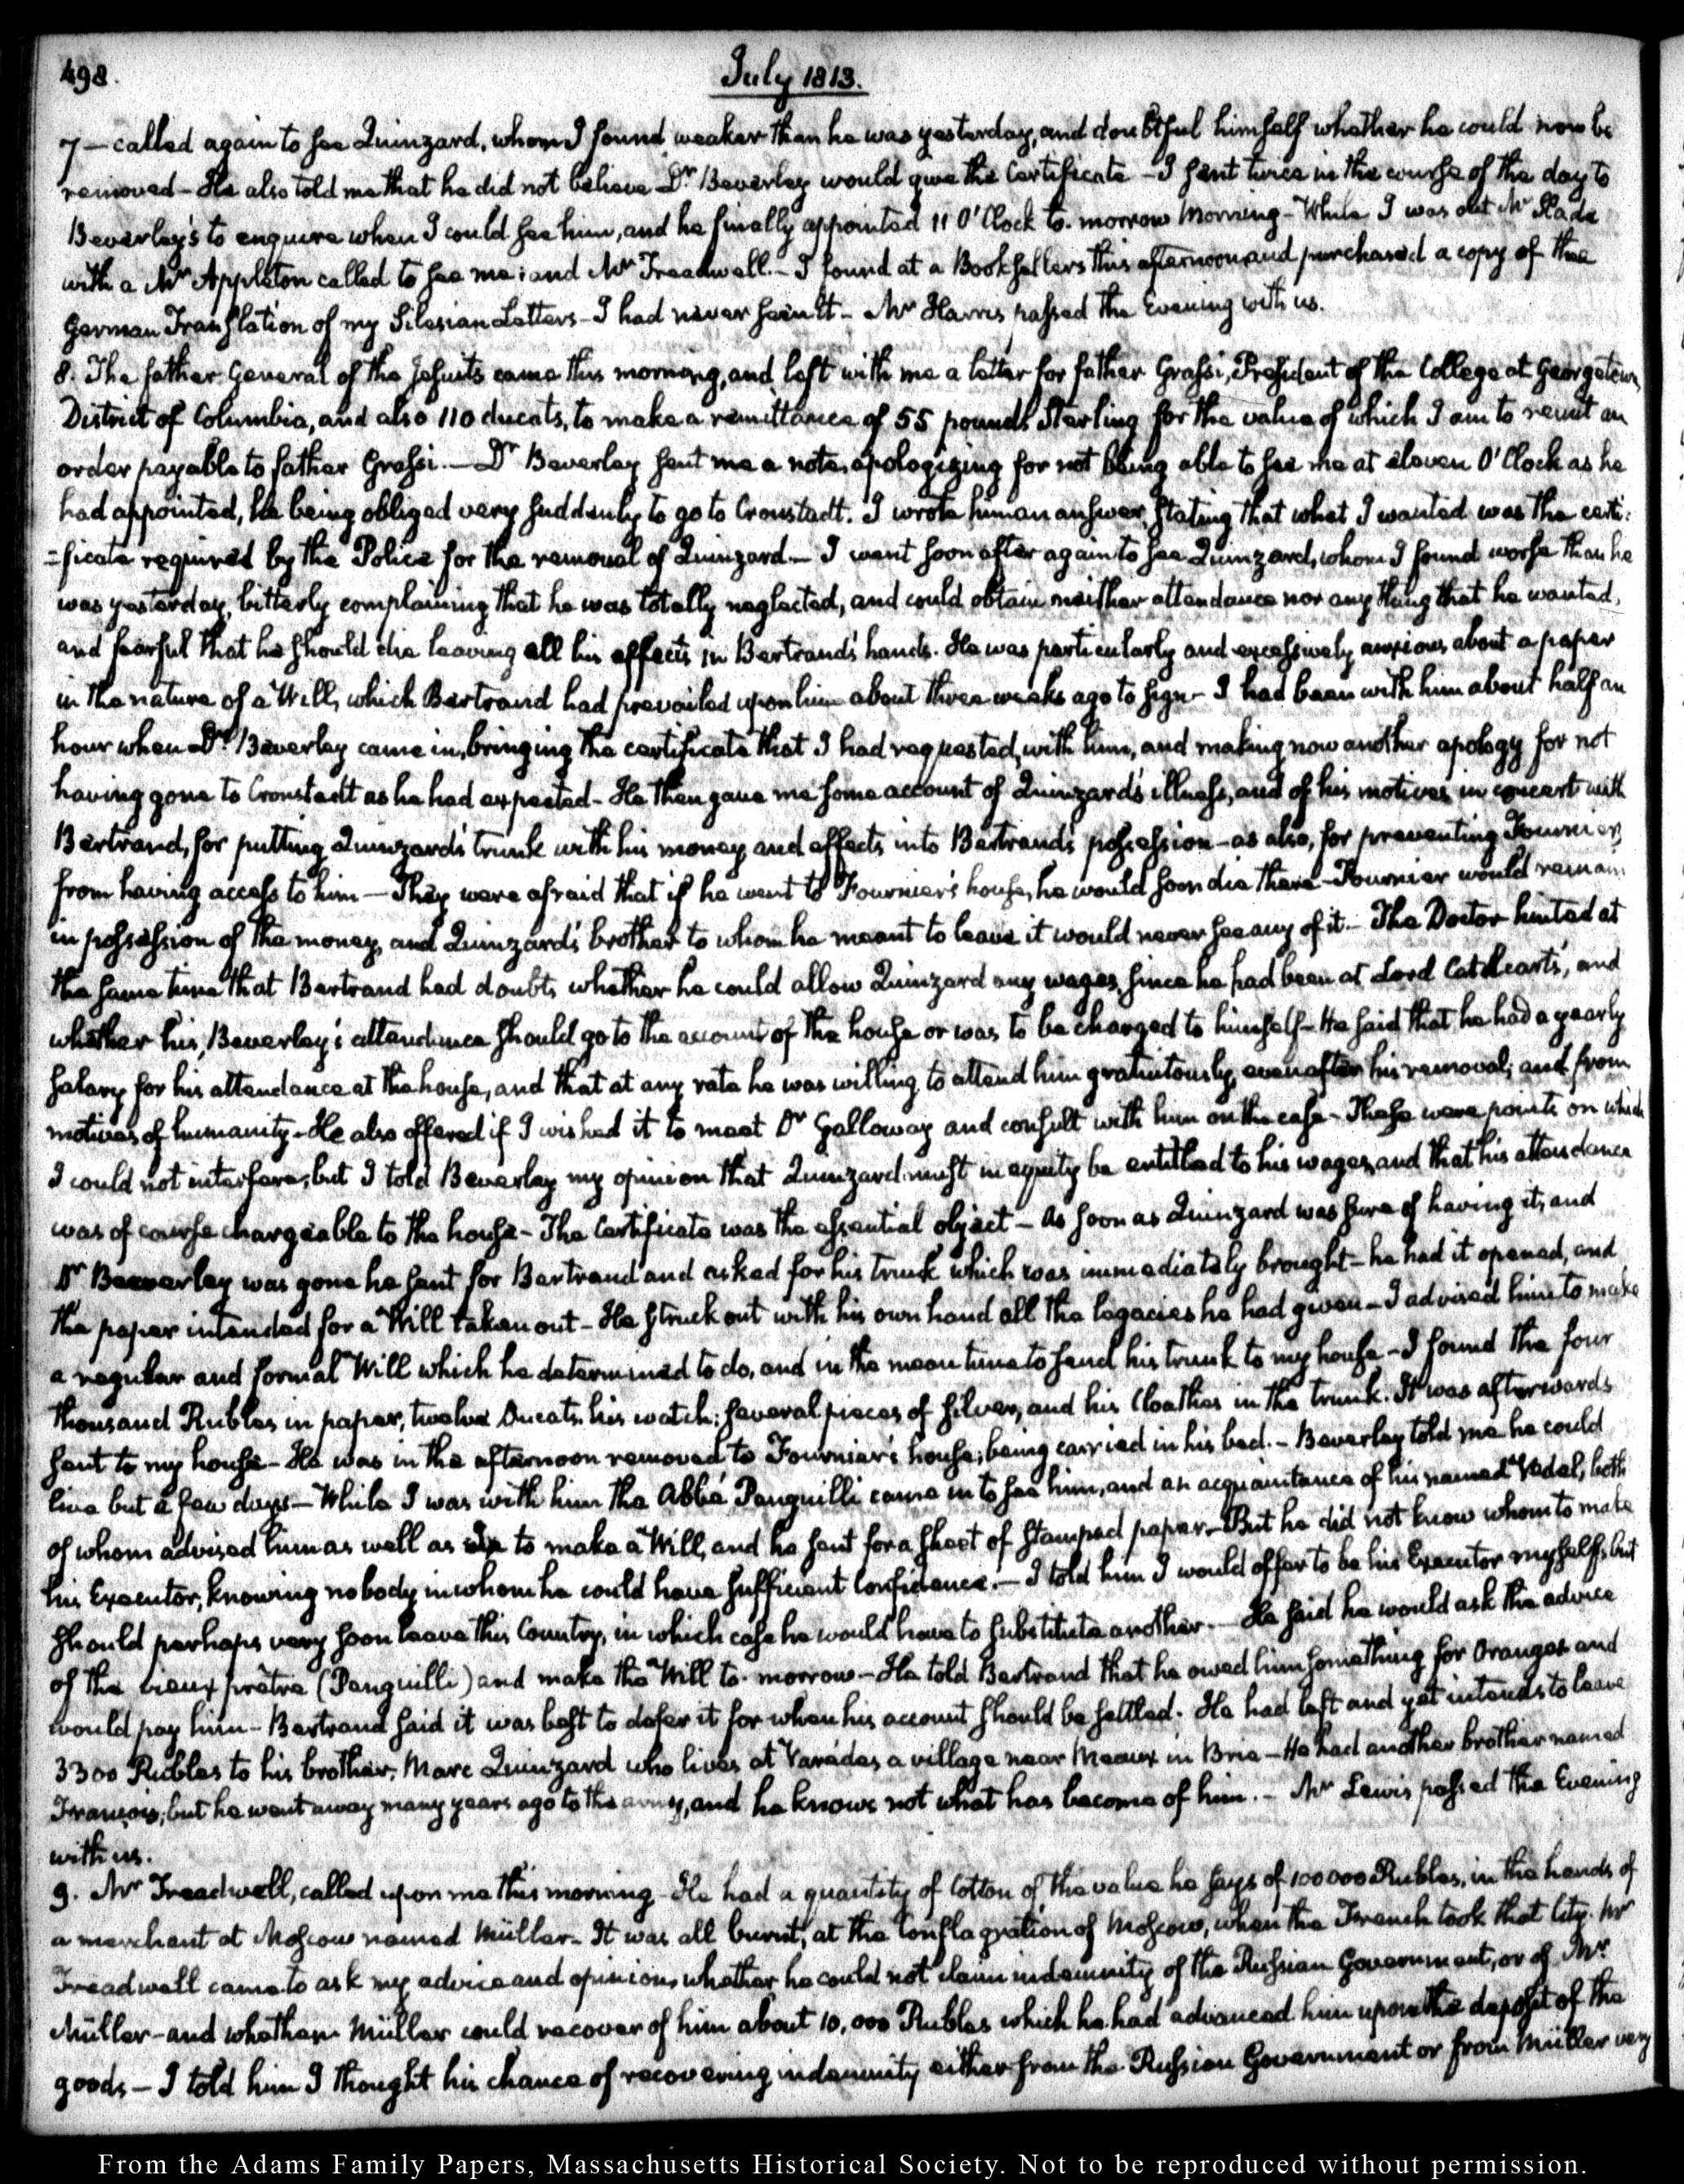 498.
July 1813.
7 — called again to see Quinzard, whom I found weaker than he was yesterday, and doubtful himself whether he could now be
removed - He also told me that he did not believe Dr Beverley would give the Certificate - I sent twice in the course of the day to
Beverley's to enquire when I could see him, and he finally appointed 11 O'Clock to-morrow Morning - While I was out Mr Slade
with a Mr Appleton called to see me; and Mr Treadwell. - I found at a Booksellers this afternoon and purchased a copy of the
German Translation of my Silesian Letters - I had never seen it - Mr Harris passed the Evening with us.
8. The father General of the Jesuits came this morning, and left with me a letter for father Grassi, President of the College at Georgetown,
District of Columbia, and also 110 ducats, to make a remittance of 55 pounds Sterling for the value of which I am to remit an
order payable to father Grassi. — Dr Beverley sent me a note, apologizing for not being able to see me at eleven O'Clock as he
had appointed, he being obliged very suddenly to go to Cronstadt. I wrote him an answer, stating that what I wanted was the certi-
=ficate required by the Police for the removal of Quinzard — I went soon after again to see Quinzard, whom I found worse than he
was yesterday, bitterly complaining that he was totally neglected, and could obtain neither attendance nor any thing that he wanted,
and fearful that he should die leaving all his effects in Bertrand's hands. He was particularly and excessively anxious about a paper
in the nature of a Will, which Bertrand had prevailed upon him about three weeks ago to sign - I had been with him about half an
hour when Dr Beverley came in, bringing the certificate that I had requested, with him, and making now another apology for not
having gone to Cronstadt as he had expected - He then gave me some account of Quinzard's illness, and of his motives in concert with
Bertrand, for putting Quinzard's trunk with his money and effects into Bertrand's possession - as also, for preventing Fournier
from having access to him — They were afraid that if he went to Fournier's house, he would soon die there - Fournier would remain
in possession of the money, and Quinzard's brother to whom he meant to leave it would never see any of it - The Doctor hinted at
the same time that Bertrand had doubts whether he could allow Quinzard any wages, since he had been at Lord Cathcart's, and
whether his, Beverley's attendance should go to the account of the house or was to be charged to himself - He said that he had a yearly
salary for his attendance at the house, and that at any rate he was willing to attend him gratuitously, even after his removal; and from
motives of humanity - He also offered if I wished it to meet Dr Galloway and consult with him on the case - These were points on which
I could not interfere; but I told Beverley my opinion that Quinzard must in equity be entitled to his wages, and that his attendance
was of course chargeable to the house - The Certificate was the essential object - As soon as Quinzard was sure of having it, and
Dr Beverley was gone he sent for Bertrand and asked for his trunk which was immediately brought - he had it opened, and
the paper intended for a Will taken out - He struck out with his own hand all the legacies he had given - I advised him to make
a regular and formal Will which he determined to do, and in the mean time to send his trunk to my house - I found the four
thousand Rubles in paper, twelve Ducats, his watch; several pieces of silver, and his Cloathes in the trunk. It was afterwards
sent to my house - He was in the afternoon removed to Fournier's house; being carried in his bed. - Beverley told me he could
live but a few days - While I was with him the Abbé Panguilli came in to see him, and an acquaintance of his named Vedel, both
of whom advised him as well as to make a Will, and he sent for a sheet of stamped paper - But he did not know whom to make
his Executor, knowing nobody in whom he could have sufficient confidence. — I told him I would offer to be his Executor myself; but
should perhaps very soon leave this Country, in which case he would have to substitute another. - He said he would ask the advice
of the vieux prêtre (Panguilli) and make the Will to-morrow - He told Bertrand that he owed him something for Oranges and
would pay him - Bertrand said it was best to defer it for when his account should be settled. He had left and yet intends to leave
3300 Rubles to his brother, Marc Quinzard who lives at Varédes a village near Meaux in Brie - He had another brother named
François; but he went away many years ago to the army, and he knows not what has become of him. - Mr Lewis passed the Evening
with us.
9. Mr Treadwell, called upon me this morning - He had a quantity of Cotton of the value he says of 100000 Rubles, in the hands of
a merchant at Moscow named Müller - It was all burnt, at the Conflagration of Moscow, when the French took that City. Mr
Treadwell came to ask my advice and opinion, whether he could not claim indemnity of the Russian Government, or of Mr
Müller - and whether Müller could recover of him about 10,000 Rubles which he had advanced him upon the deposit of the
goods — I told him I thought his chance of recovering indemnity either from the Russian Government or from Müller very
From the Adams Family Papers, Massachusetts Historical Society. Not to be reproduced without permission.